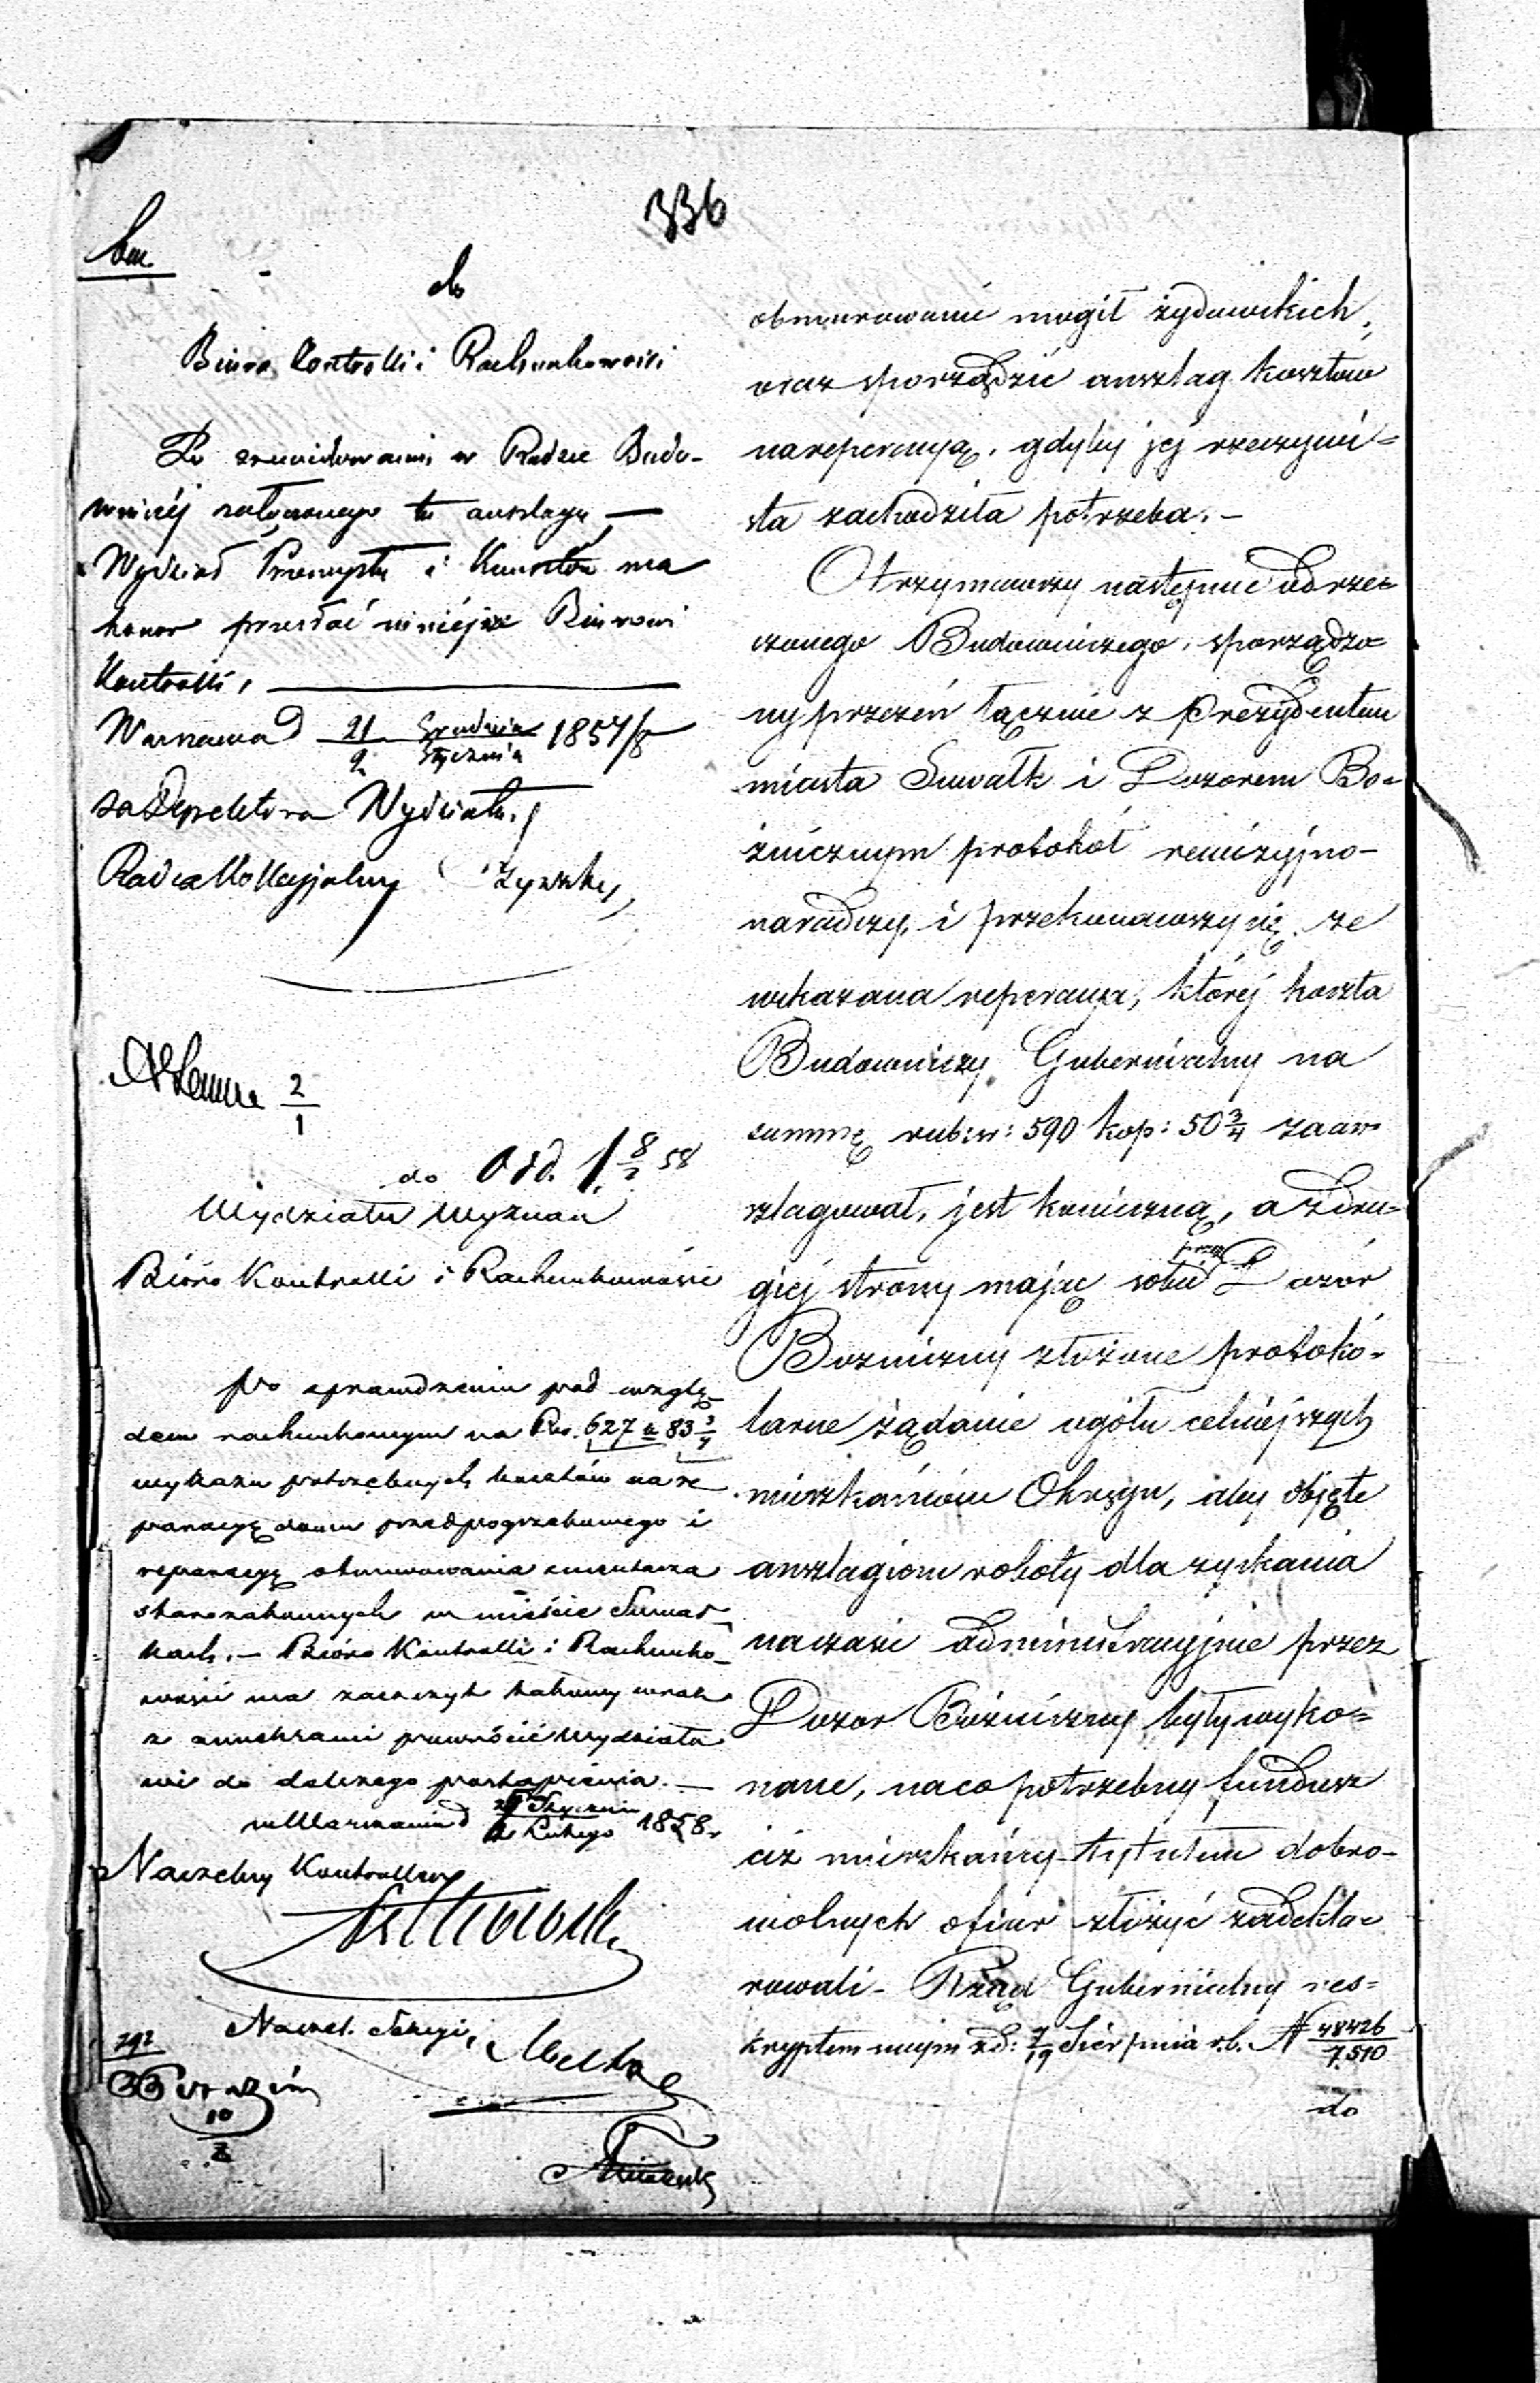 336
do
Biura Kontrolli i Rachunkowości
Po zrewidowaniu w Radzie Budo-
wniczéj załączonego tu anszlagu —
Wydział Przemysłu i Kunsztów ma
honor przesłać niniéjsze Biurowi
Kontrolli, —
Warszawa d 21/2 Grudnia/Stycznia 1857/8
za Dyrektora Wydziału,
Radca Kollegjalny
2/1
do Odd. 1. 8/2 58
Wydziału Wyznań
Bióro Kontrolli i Rachunkowości
Po sprawdzeniu pod wzglę-
dem rachunkowym na Rs. 627 k 83 3/4
wykazu potrzebnych kosztów na re
paracyę domu przedpogrzebowego i
reparacyę obmurowania cmentarza
starozakonnych w mieście Suwał-
kach. — Bióro Kontrolli i Rachunko-
wości ma zaszczyt takowy wraz
z annexami powrócić Wydziało
wi do dalszego postąpienia. —
w Warszawie d Stycznia/Lutego 1858.
Naczelny Kontroller
Naczel. Sekcyi,
292
10/2
obmurowanie mogił żydowskich,
oraz sporządzić anszlag kosztów
na reperacyą, gdyby jej rzeczywi=
sta zachodziła potrzeba. —
Otrzymawszy następnie od rze=
czonego Budowniczego, sporządzo=
ny przezeń łącznie z Prezydentem
miasta Suwałk i Dozorem Bo=
żnicznym protokół rewizyjno-
naradczy, i przekonawszy się że
wskazana reperacya, której koszta
Budowniczy Gubernialny na
summę rub: sr: 590 kop: 50 3/4 zaan
szlagował, jest konieczną, a z dru=
giej strony mając sobie przez Dozór
Bozniczny złożone protokó-
larne żądanie ogółu celniejszych
mieszkańców Okręgu, aby objęte
anszlagiem roboty dla zyskania
na czasie administracyjnie przez
Dozor Bóżniczny były wyko=
nane, na co potrzebny fundusz
ciż mieszkańcy tytułem dobro-
wolnych ofiar złożyć zadekla=
rowali – Rząd Gubernialny res=
kryptem swojm z d: 7/19 Sierpnia r.b. N 48426/7,510
do